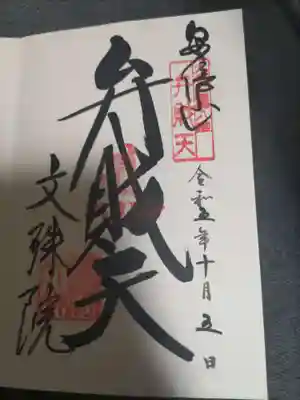 安倍山
弁財天
令和五年十月五日
弁財天
文殊院